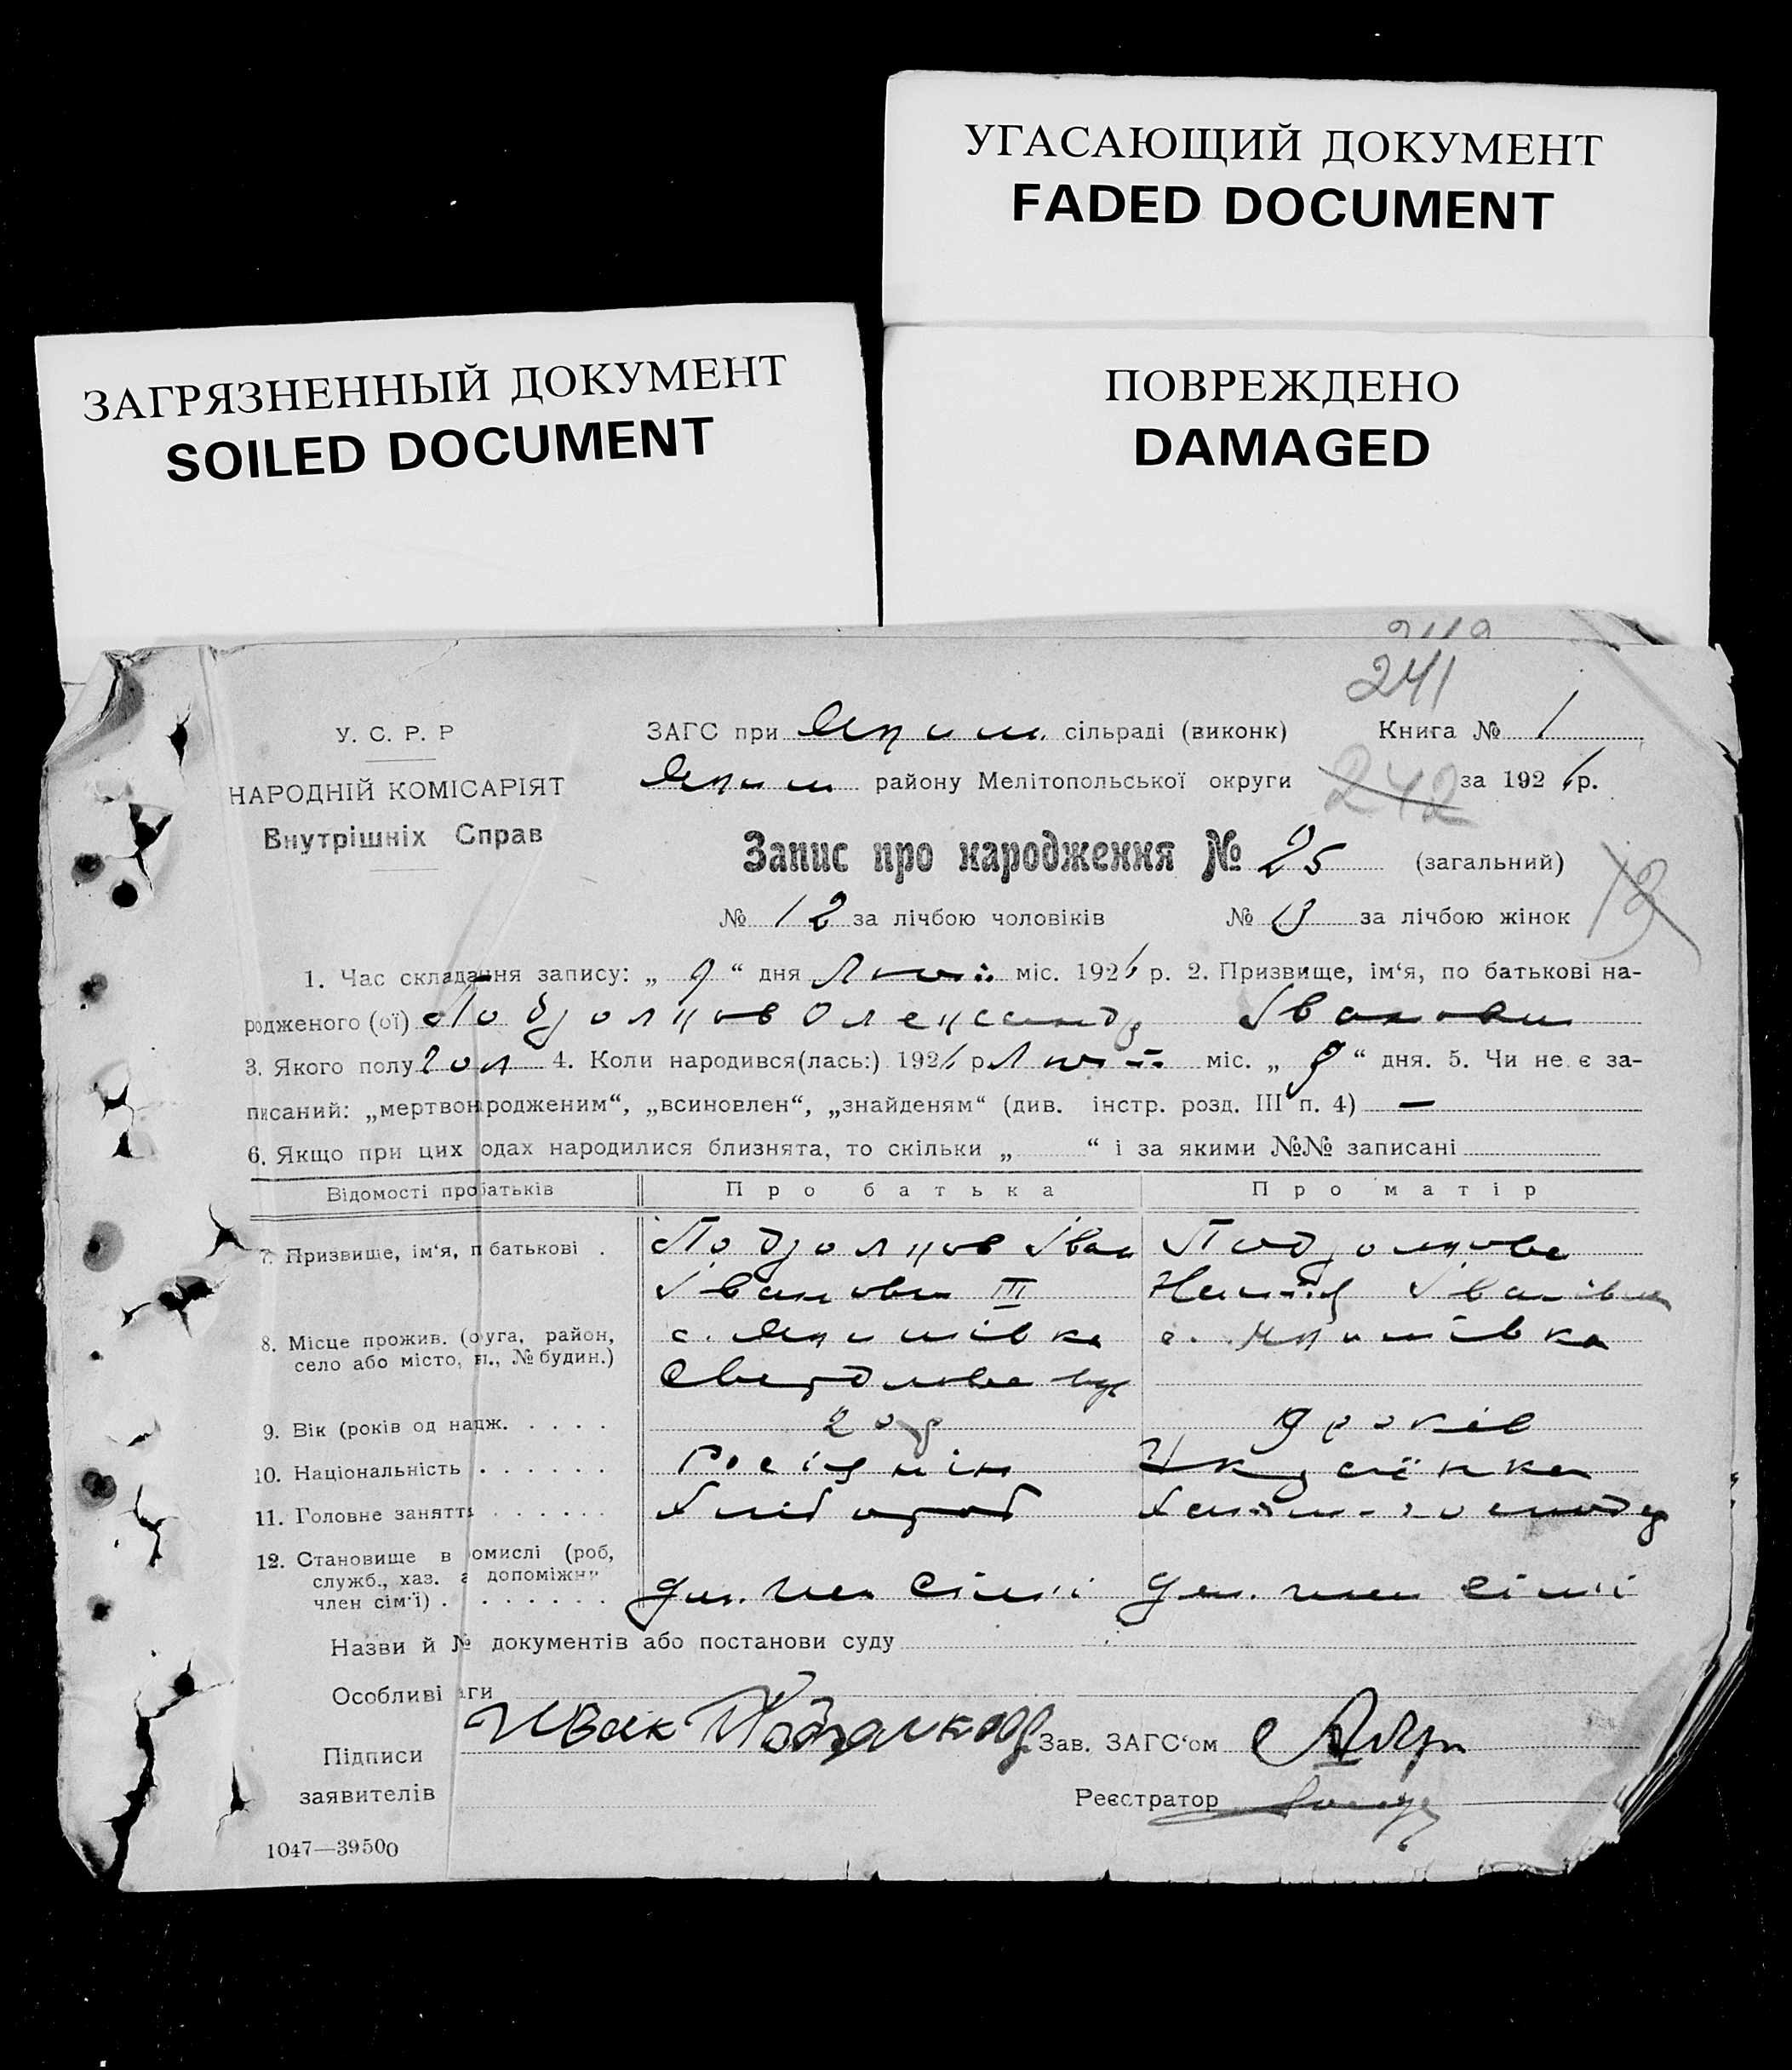 УГАСАЮЩИЙ ДОКУМЕНТ
FADED DOCUMENT
ЗАГРЯЗНЕННЫЙ ДОКУМЕНТ
SOILED DOCUMENT
ПОВРЕЖДЕНО
DAMAGED
241
У. С. Р. Р
НАРОДНІЙ КОМІСАРІЯТ
Внутрішніх Справ
ЗАГС при Яким. сільраді (виконк) Книга № 1
Яким району Мелітопольської округи 242 за 1926 р.
Запис про народження № 25 (загальний)
№ 12 за лічбою чоловіків № 13 за лічбою жінок 13
1. Час складання запису: „ 9 “ дня міс. 1926 р. 2. Призвище, ім‘я, по батькові на-
родженого (ої) Подзолков Олександр Іванович
3. Якого полу чол 4. Коли народився(лась:) 1926 р. міс. „ “ дня. 5. Чи не є за-
писаний: „мертвонародженим“, „всиновлен“, „знайденям“ (див. інстр. розд. III п. 4) —
6. Якщо при цих одах народилися близнята, то скільки „ “ і за якими №№ записані
Відомості про батьків Про батька Про матір
7. Призвище, ім‘я, п батькові . Подзолков Іван Подзолкова
Іванович III Іванівна
8. Місце прожив. (о уга, район, с. Якимівка с. Якимівка
село або місто, в л., № будин.) Свердлова вул
9. Вік (років од надж. . . . . 20 р 19 років
10. Національність . . . . . . Росіянин Українка
11. Головне заняття . . . . . . Хлібороб Хатня-господ
12. Становище в омислі (роб,
служб., хаз. а допоміжни
член сім‘ї) . . . . . . . . Доп. член сім'ї Доп. член сім'ї
Назви й № документів або постанови суду
Особливі аги
Підписи Иван Подзолков Зав. ЗАГС‘ом
заявителів Реєстратор
1047—39500